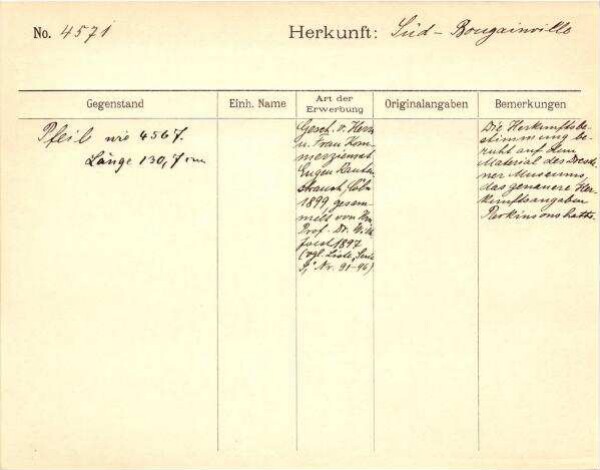 No. 4571
Herkunft: Süd-Bougainville
Gegenstand
Einh. Name
Art der
Erwerbung
Originalangaben
Bemerkungen
Pfeil wie 4567.
Länge 130,7 cm
Gesch. v. Herrn
u. Frau Kom-
merzienrat
Eugen Rauten-
strauch, Cöln
1899 gesam-
melt von
Prof. Dr.
1897
(vgl. Liste
Nr. 91-96)
Die Herkunftsbe-
stimmung be-
ruht auf dem
Material des Dresd-
ner Museums,
das genauere Her-
kunftsangaben
Parkinsons hatte.